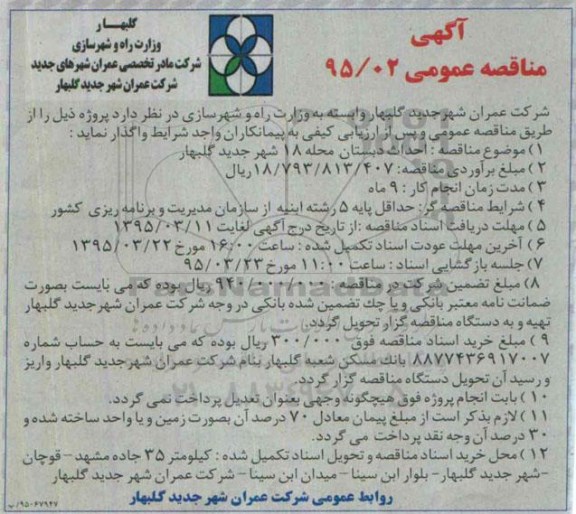 آگهی
مناقصه عمومی ۹۵/۰۲
گلبهـار
وزارت راه و شهرسازی
شرکت مادر تخصصی عمران شهرهای جدید
شرکت عمران شهر جدید گلبهار
شرکت عمران شهر جدید گلبهار وابسته به وزارت راه و شهرسازی در نظر دارد پروژه ذیل را از
طریق مناقصه عمومی و پس از ارزیابی کیفی به پیمانکاران واجد شرایط واگذار نماید :
۱) موضوع مناقصه : احداث دبستان محله ۱۸ شهر جدید گلبهار
۲) مبلغ برآوردی مناقصه: ۱۸/۷۹۳/۸۱۳/۴۰۷ ریال
۳) مدت زمان انجام کار : ۹ ماه
۴) شرایط مناقصه گر: حداقل پایه ۵ رشته ابنیه از سازمان مدیریت و برنامه ریزی کشور
۵) مهلت دریافت اسناد مناقصه :از تاریخ درج آگهی لغایت ۱۳۹۵/۰۳/۱۱
۶) آخرین مهلت عودت اسناد تکمیل شده : ساعت ۱۶:۰۰ مورخ ۱۳۹۵/۰۳/۲۲
۷) جلسه بازگشایی اسناد : ساعت ۱۱:۰۰ مورخ ۹۵/۰۳/۲۳
۸) مبلغ تضمین شرکت در مناقصه : ۹۴۰/۰۰۰/۰۰۰ ریال بوده که می بایست بصورت
ضمانت نامه معتبر بانکی و یا چک تضمین شده بانکی در وجه شرکت عمران شهر جدید گلبهار
تهیه و به دستگاه مناقصه گزار تحویل گردد.
۹ ) مبلغ خرید اسناد مناقصه فوق ۳۰۰/۰۰۰ ریال بوده که می بایست به حساب شماره
۸۸۷۷۴۳۶۹۱۷۰۰۷ بانک مسکن شعبه گلبهار بنام شرکت عمران شهر جدید گلبهار واریز
و رسید آن تحویل دستگاه مناقصه گزار گردد.
۱۰ ) بابت انجام پروژه فوق هیچگونه وجهی بعنوان تعدیل پرداخت نمی گردد.
۱۱ ) لازم بذکر است از مبلغ پیمان معادل ۷۰ درصد آن بصورت زمین و یا واحد ساخته شده و
۳۰ درصد آن وجه نقد پرداخت می گردد.
۱۲ ) محل خرید اسناد مناقصه و تحویل اسناد تکمیل شده : کیلومتر ۳۵ جاده مشهد- قوچان
-شهر جدید گلبهار- بلوار ابن سینا – میدان ابن سینا – شرکت عمران شهر جدید گلبهار
روابط عمومی شرکت عمران شهر جدید گلبهار
۹۵۰۶۷۹۴۷/ب
ParsNamadData